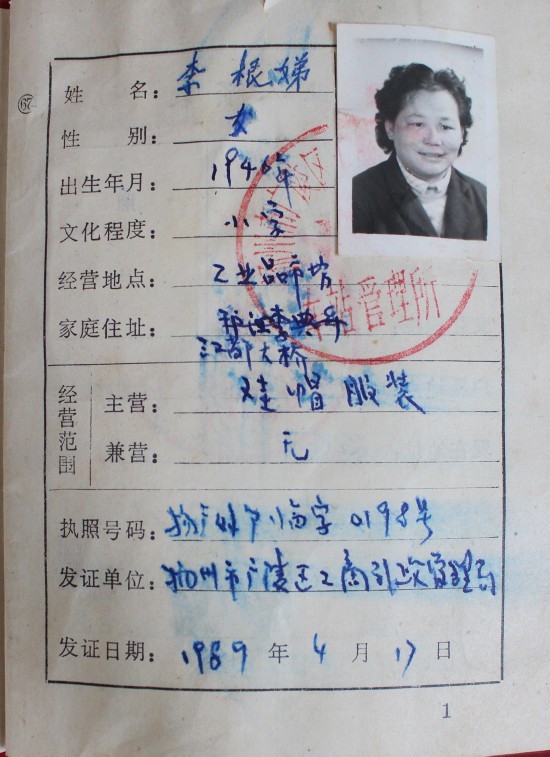 姓 名：李根娣
性 别：女
出生年月：1946年
文化程度：小学
经营地点：工业品市场
家庭住址：邗江李典
江都大桥
经营范围
主营：鞋帽服装
兼营：无
执照号码：0198号
发证单位：扬州市广陵区工商行政管理局
发证日期：1989年4月17日
车站管理所
67
1